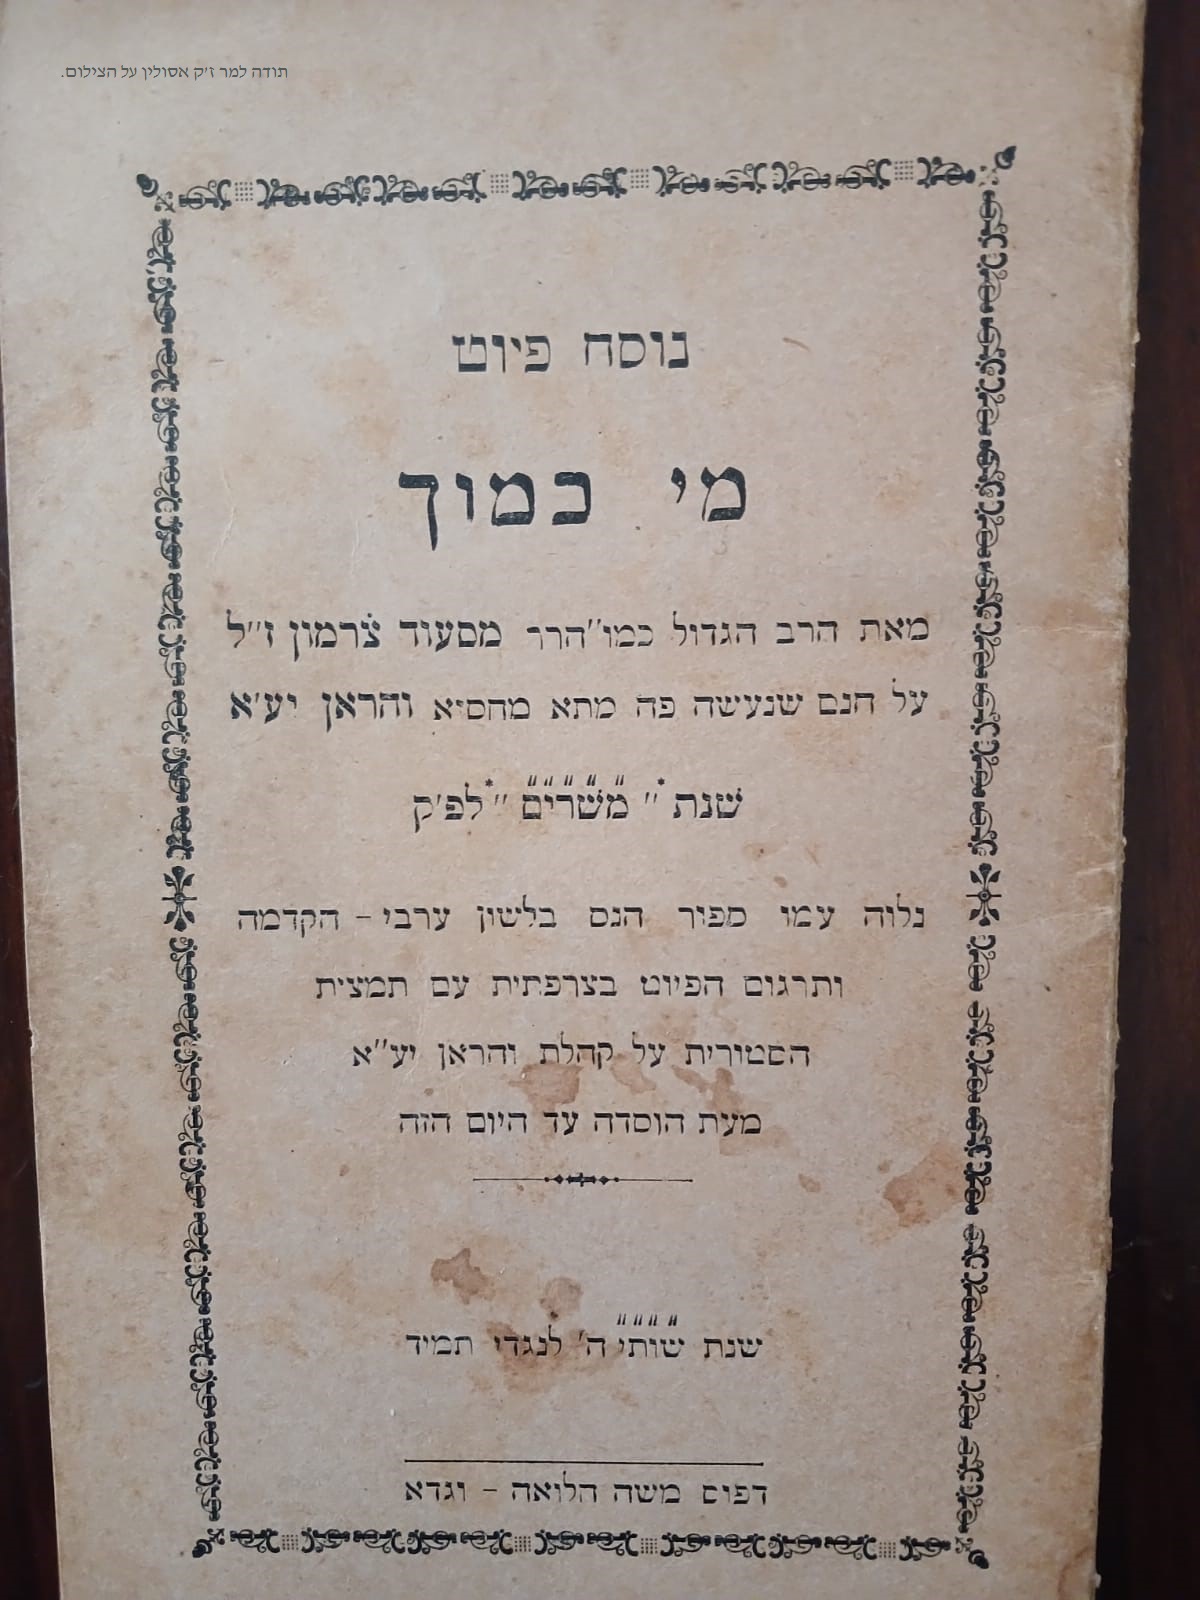 תודה למר ז'ק אסולין על הצילום.
נוסח פיוט
מי כמוך
מאת הרב הגדול כמו״הרר מסעוד צׄרמון ז״ל
על הנס שנעשה פה מתא מהסי״א והראן יע׳א
שׁנת * ״ מ״שׁ״ר״י״ם״ ״ * לפ׳ק
נלוה עמו ספור הנס בלשון ערבי – הקדמה
ותרגום הפיוט בצרפתית עם תמצית
הסטורית על קהלת והראן יע״א
מעת הוסדה עד היום הזה
שנת ש״ו״ת״י״ ה׳ לנגדי תמיד
דפוס משה הלואה – וגדא